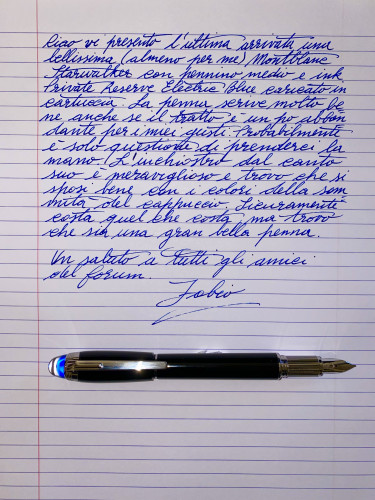 Ciao vi presento l'ultima arrivata una
bellissima (almeno per me) Montblanc
Starwalker con pennino medio e ink
Private Reserve Electric Blue caricato in
cartuccia. La penna scrive molto be
ne anche se il tratto è un po abbon
dante per i miei gusti. Probabilmente
è solo questione di prenderci la
mano. L'inchiostro dal canto
suo è meraviglioso e trovo che si
sposi bene con i colori della som
mità del cappuccio. Sicuramente
costa quel che costa, ma trovo
che sia una gran bella penna.
Un saluto a tutti gli amici
del forum.
Fabio